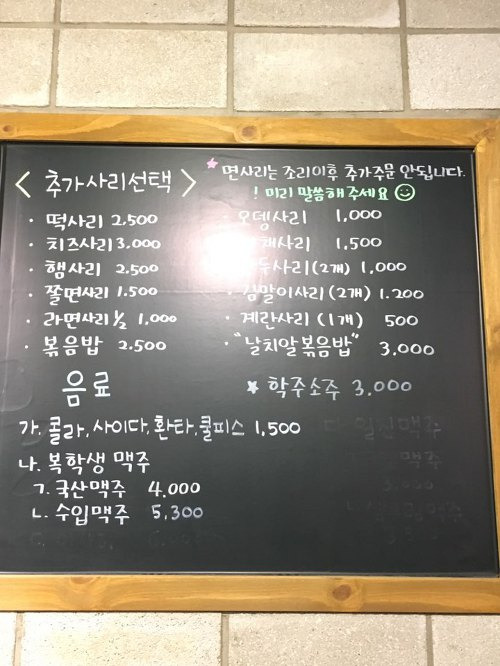 ★ 면사리는 조리이후 추가주문 안됩니다.
! 미리 말씀해 주세요
< 추가사리선택 >
· 떡사리 2,500
· 치즈사리 3,000
· 햄사리 2,500
· 쫄면사리 1.500
· 라면사리 ½ 1,000
· 볶음밥 2.500
· 오뎅사리 1,000
1,500
(2개) 1,000
· 김말이사리 (2개) 1.200
· 계란사리 (1개) 500
· "날치알볶음밥" 3,000
음료
★ 학주소주 3,000
가. 콜라, 사이다, 환타, 쿨피스 1,500
나. 복학생 맥주
ㄱ. 국산맥주 4.000
ㄴ. 수입맥주 5,300